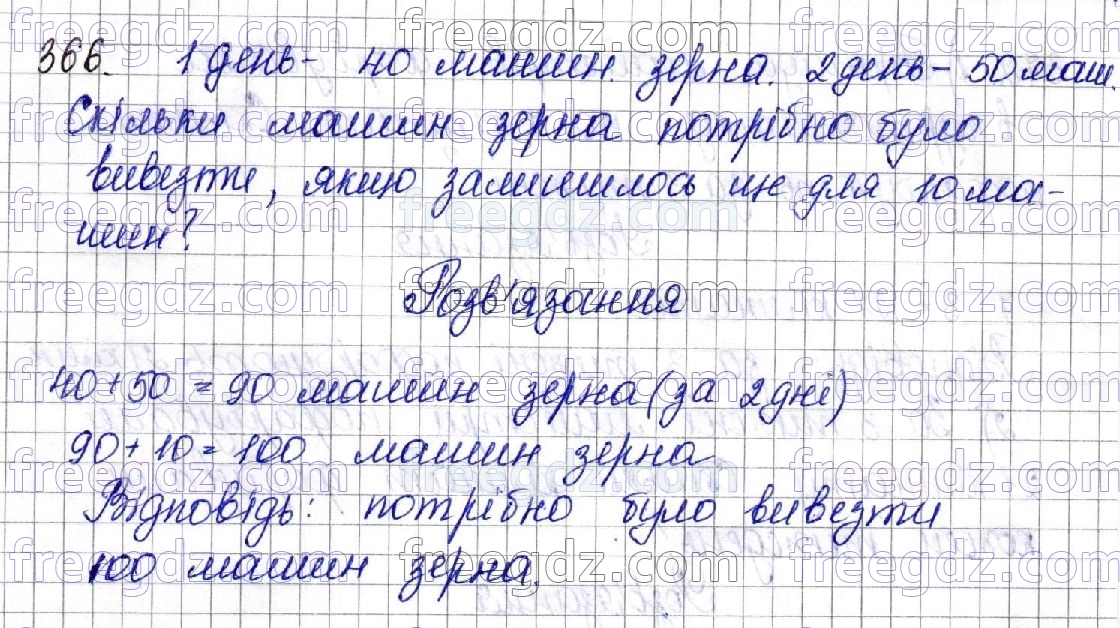 366. 1 день - 40 машин зерна. 2 день - 50 маш.
Скільки машин зерна потрібно було
вивезти, якщо залишилось ще для 10 ма-
шин?
Розв'язання
40 + 50 = 90 машин зерна (за 2 дні)
90 + 10 = 100 машин зерна
Відповідь: потрібно було вивезти
100 машин зерна.
freegdz.com